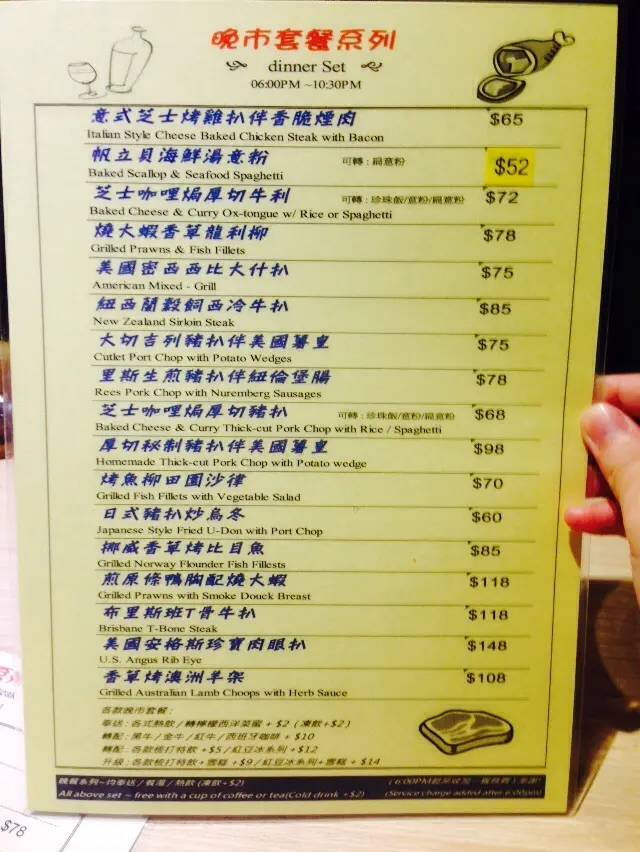 晚市套餐系列
dinner Set
06:00PM ~10:30PM
意式芝士烤雞扒伴香脆煙肉 $65
Italian Style Cheese Baked Chicken Steak with Bacon
帆立貝海鮮湯意粉 可轉:扁意粉 $52
Baked Scallop & Seafood Spaghetti
芝士咖哩焗厚切牛利 可轉:珍珠飯/意粉/扁意粉 $72
Baked Cheese & Curry Ox-tongue w/ Rice or Spaghetti
燒大蝦香草龍利柳 $78
Grilled Prawns & Fish Fillets
美國密西西比大什扒 $75
American Mixed - Grill
紐西蘭穀飼西冷牛扒 $85
New Zealand Sirloin Steak
大切吉列豬扒伴美國薯皇 $75
Cutlet Port Chop with Potato Wedges
里斯生煎豬扒伴紐倫堡腸 $78
Rees Pork Chop with Nuremberg Sausages
芝士咖哩焗厚切豬扒 可轉:珍珠飯/意粉/扁意粉 $68
Baked Cheese & Curry Thick-cut Pork Chop with Rice / Spaghetti
厚切秘制豬扒伴美國薯皇 $98
Homemade Thick-cut Pork Chop with Potato wedge
烤魚柳田園沙律 $70
Grilled Fish Fillets with Vegetable Salad
日式豬扒炒烏冬 $60
Japanese Style Fried U-Don with Port Chop
挪威香草烤比目魚 $85
Grilled Norway Flounder Fish Fillests
煎原條鴨胸配燒大蝦 $118
Grilled Prawns with Smoke Douck Breast
布里斯班T骨牛扒 $118
Brisbane T-Bone Steak
美國安格斯珍寶肉眼扒 $148
U.S. Angus Rib Eye
香草烤澳洲羊架 $108
Grilled Australian Lamb Choops with Herb Sauce
各款晚市套餐:
奉送:各式熱飲/轉檸檬西洋菜蜜 + $2 (凍飲+$2)
轉配:黑牛/金牛/紅牛/西班牙咖啡 + $10
轉配:各款梳打特飲 +$5/紅豆冰系列+$12
升級:各款梳打特飲+雪糕 +$9/紅豆冰系列+雪糕 + $14
晚餐系列~均奉送/餐湯/熱飲(凍飲+$2)
All above set ~ free with a cup of coffee or tea(Cold drink +$2)
(Service charge added after 6:00pm)
$78